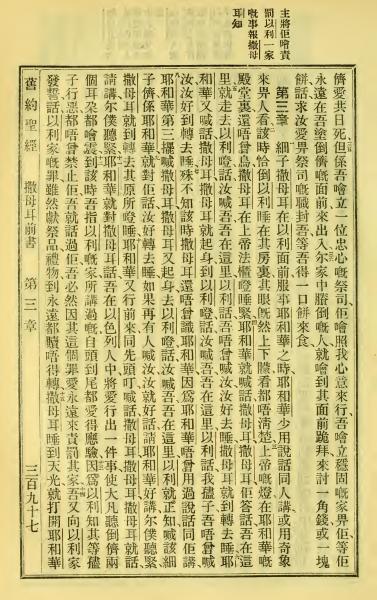 主將佢嚕責
罰以利一家
嘅事報撒母
耳知
儕愛共日死但係吾嚕立一位忠心嘅祭司佢嚕照我心意來行吾嚕立穩固嘅家畀佢等佢
永遠在吾塗倒儕嘅面前來出入尔家中賸倒嘅人就嚕到其面前跪拜來討一角錢或一塊
餅話求汝愛畀祭司嘅職封吾等吾得一口餅來食
第三章 細子撒母耳在以利面前服事耶和華之時耶和華少用說話同人講或用奇象
來畀人看該時恰倒以利睡在其房裏其眼嘅然上下矇看都唔清楚上帝嘅燈在耶和華嘅
殿堂裏還唔曾烏撒母耳在上帝法櫃嶝睡緊耶和華就喊話撒母耳撒母耳佢答話吾在這
里就走去以利嶝話汝喊吾吾在這里以利話吾唔曾喊汝汝好去睡撒母耳就到轉去睡耶
和華又喊話撒母耳撒母耳就起身到以利嶝話汝喊吾吾在這里以利話我儘子吾唔曾喊
汝汝好到轉去睡殊不知該時撒母耳還唔曾識耶和華因爲耶和華唔曾用過說話同佢講
耶和華第三擺喊撒母耳撒母耳又起身去以利嶝話汝喊吾吾在這里以利就正知喊該細
子儕係耶和華就對佢話汝好轉去睡如果再有人喊汝汝就好話請耶和華好講尔僕聽緊
撒母耳就到轉去其原所嶝睡耶和華又行前來同先頭叮喊話撒母耳撒母耳撒母耳就話
請講尔僕聽緊耶和華就對撒母耳話吾在以色列人中將愛行出一件事使大凡聽倒儕兩
個耳朶都嚕震到該時吾指以利嘅家所講過嘅自頭到尾都愛得應驗因爲以利知其等儘
子行惡都唔曾禁止佢吾就話過佢吾必然因其這個罪愛永遠來責罰其家吾又向以利家
發誓話以利家嘅罪雖然獻祭品禮物到永遠都贖唔得轉撒母耳睡到天光就打開耶和華
舊約聖經 撒母耳前書 第三章 三百九十七